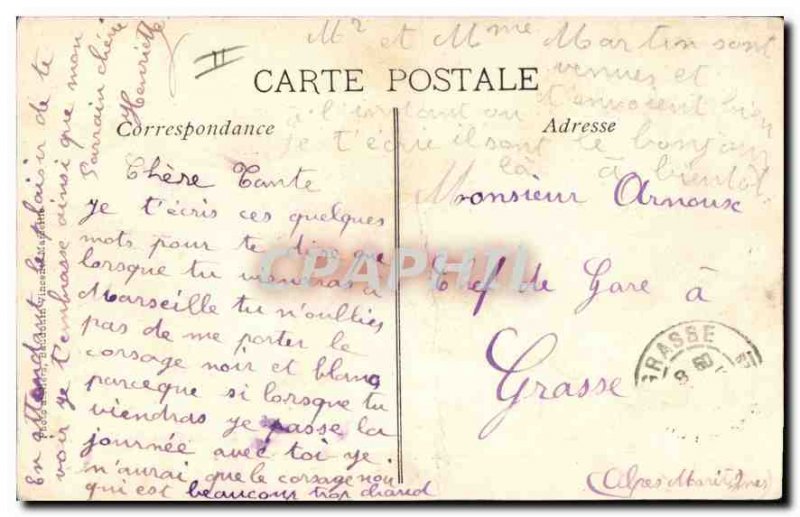 Mr et Mme Martin sont
venues et
t'envoient bien
le bonjour
à bientôt
à l'instant ou
je t'écris ils sont
là
II
CARTE POSTALE
Correspondance
Adresse
Chère Tante
Je t'écris ces quelques
mots pour te dire que
lorsque tu viendras à
Marseille tu n'oublies
pas de me porter le
corsage noir et blanc
parceque si lorsque tu
viendras je passe la
journée avec toi je
n'aurai que le corsage noir
qui est beaucoup trop chaud
En attendant le plaisir de te
voir je t'embrasse ainsi que mon
Parrain chéri
Henriette
Monsieur Arnoux
Chef de Gare à
Grasse
(Alpes Maritimes)
GRASSE
CPAPHIL